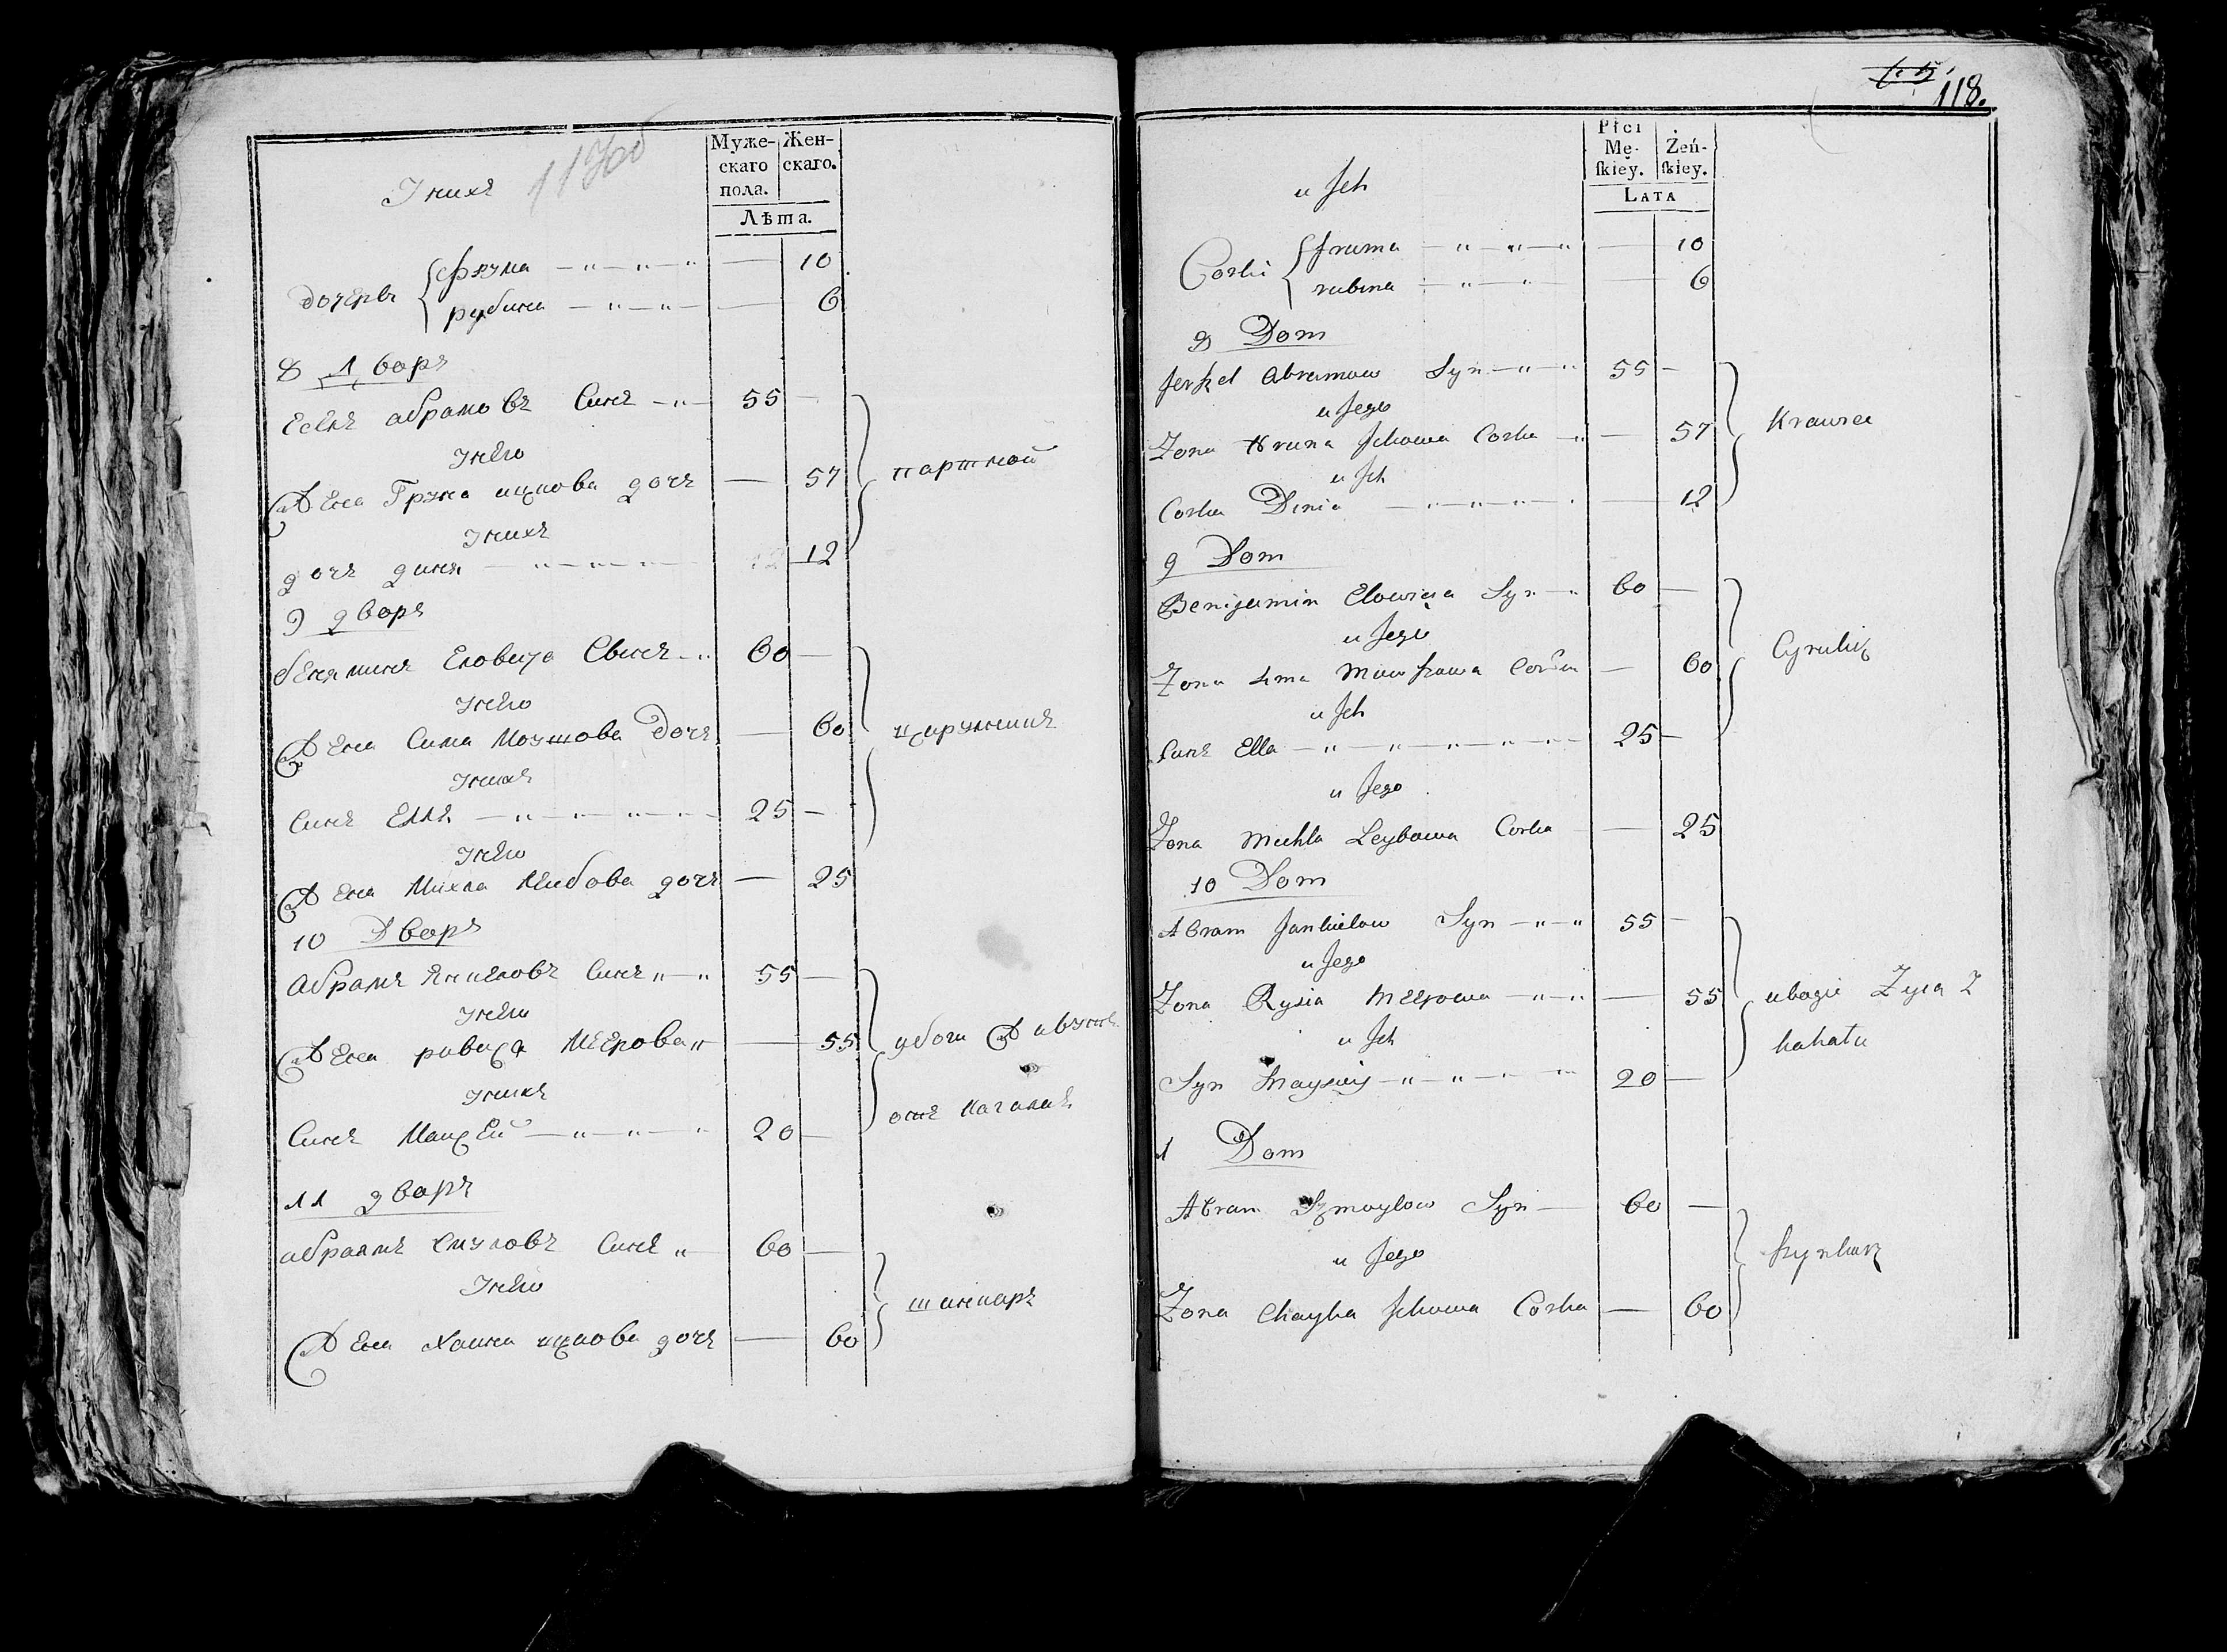 Муже- Жен-
скаго скаго.
пола.
Лѣта.
117об
Униxъ
дочерѣ фрума — 10
рубина — 6
8 Дворъ
Есель абрамовъ Синъ 55 —
Унего
Жена Груна ицкова дочъ — 57
портной
Унихъ
дочъ диня 12
9 дворъ
беняминъ Еловича Сынъ 60 —
Унего
Жена Сима Моушова Дочъ — 60
цирулникъ
Унихъ
Синъ Елля 25 —
Унего
Жена Михла Лейбова дочъ — 25
10 Дворъ
Абрамъ Янкеловъ Синъ 55 —
Унего
Жена Меерова — 55
убоги
Унихъ
Синъ 20 —
кагалая
11 дворъ
абрамъ Смуловъ Синъ 60 —
Унего
шинкаръ
Жена Хаика ицкова дочъ — 60
118.
Płci
Mę- Żeń-
skiey. skiey.
LATA
u Jch
Corki fruma — 10
rubina — 6
8 Dom
Jeskel Abramow Syn 55 —
u Jego
Zona Hruna Jckowa Corka — 57
Krawiec
u Jch
Corka Dinia — 12
9 Dom
Benijamin Elowicza Syn 60 —
u Jego
Zona Sima Mowszowa Corka — 60
Cyrulik
u Jch
Синъ Ella 25 —
u Jego
Zona Michla Leybowa Corka — 25
10 Dom
Abram Jankielow Syn 55 —
u Jego
Zona Rysia Meerowa — 55
ubogie Zyią Z
u Jch
kahału
Syn 20 —
1 Dom
Abram Szmoylow Syn 60 —
u Jego
szynkarz
Zona Chayka Jckowa Corka — 60